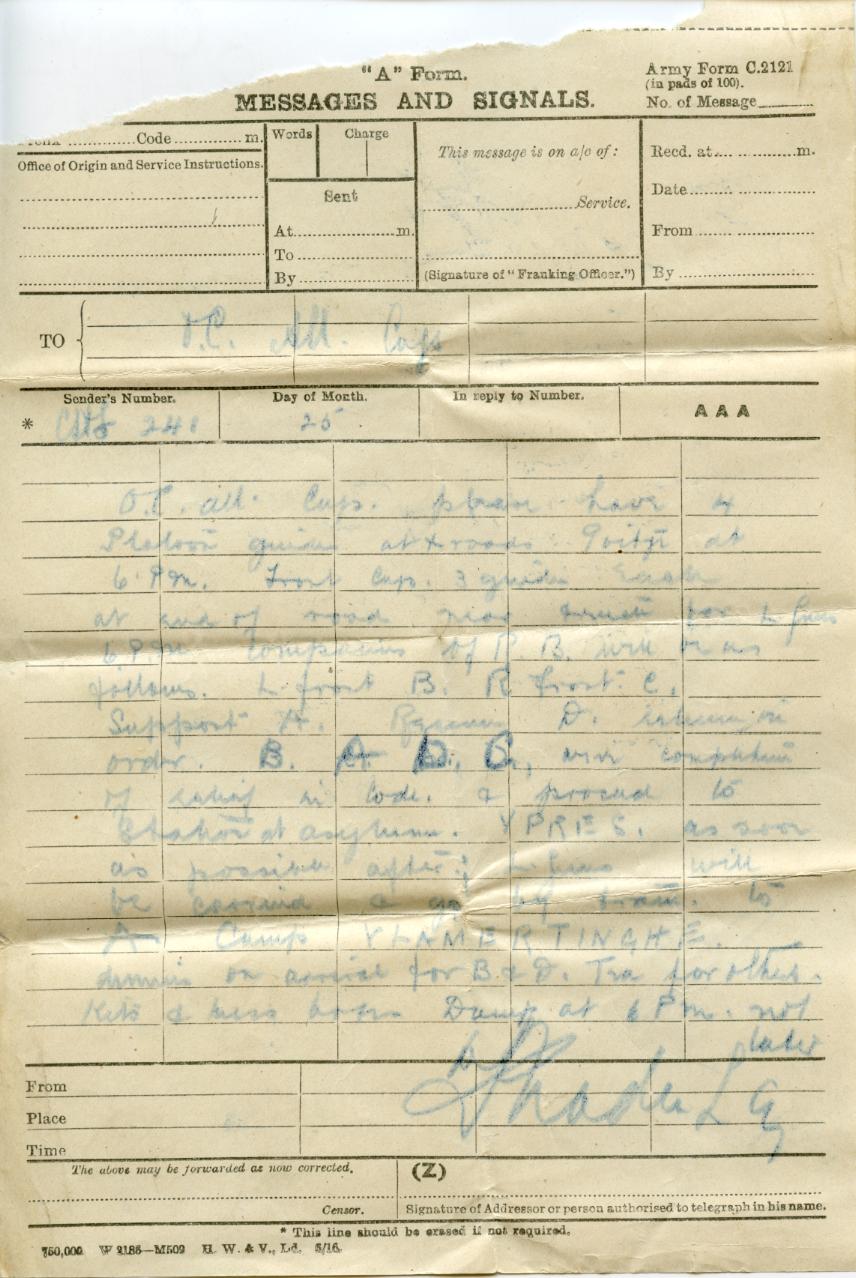 "A" Form.
MESSAGES AND SIGNALS.
Army Form C.2121
(in pads of 100).
No. of Message
Code m.
Words Charge
This message is on a/c of:
Recd. at m.
Office of Origin and Service Instructions.
Sent
Service.
Date
At m.
From
To
By
(Signature of "Franking Officer.")
By
TO
O.C. All. Coys
Sender's Number. Day of Month. In reply to Number. A A A
* 248 25
O.C. all. Coys. please have 4
Platoon guides at X roads Potije at
6 P.M. Front Coys. 3 guides each
at end of road near for L guns
6 P.M. Companies of R. B. will be as
follows. L front B. R front C.
Support A. D.
order. B. A D, C, wire completion
of relief in code. & proceed to
Station at asylum. YPRES. as soon
as possible after; L guns will
be carried & go by train. to
A Camp VLAMERTINGHE.
dinners on arrival for B & D. Tea for others.
Kits & mess boxes Dump at 6 P.m. not
later
From
Place
Time
The above may be forwarded as now corrected.
(Z)
Censor.
Signature of Addressor or person authorised to telegraph in his name.
* This line should be erased if not required.
750,000 W 2186—M509 H. W. & V., Ld. 5/16.